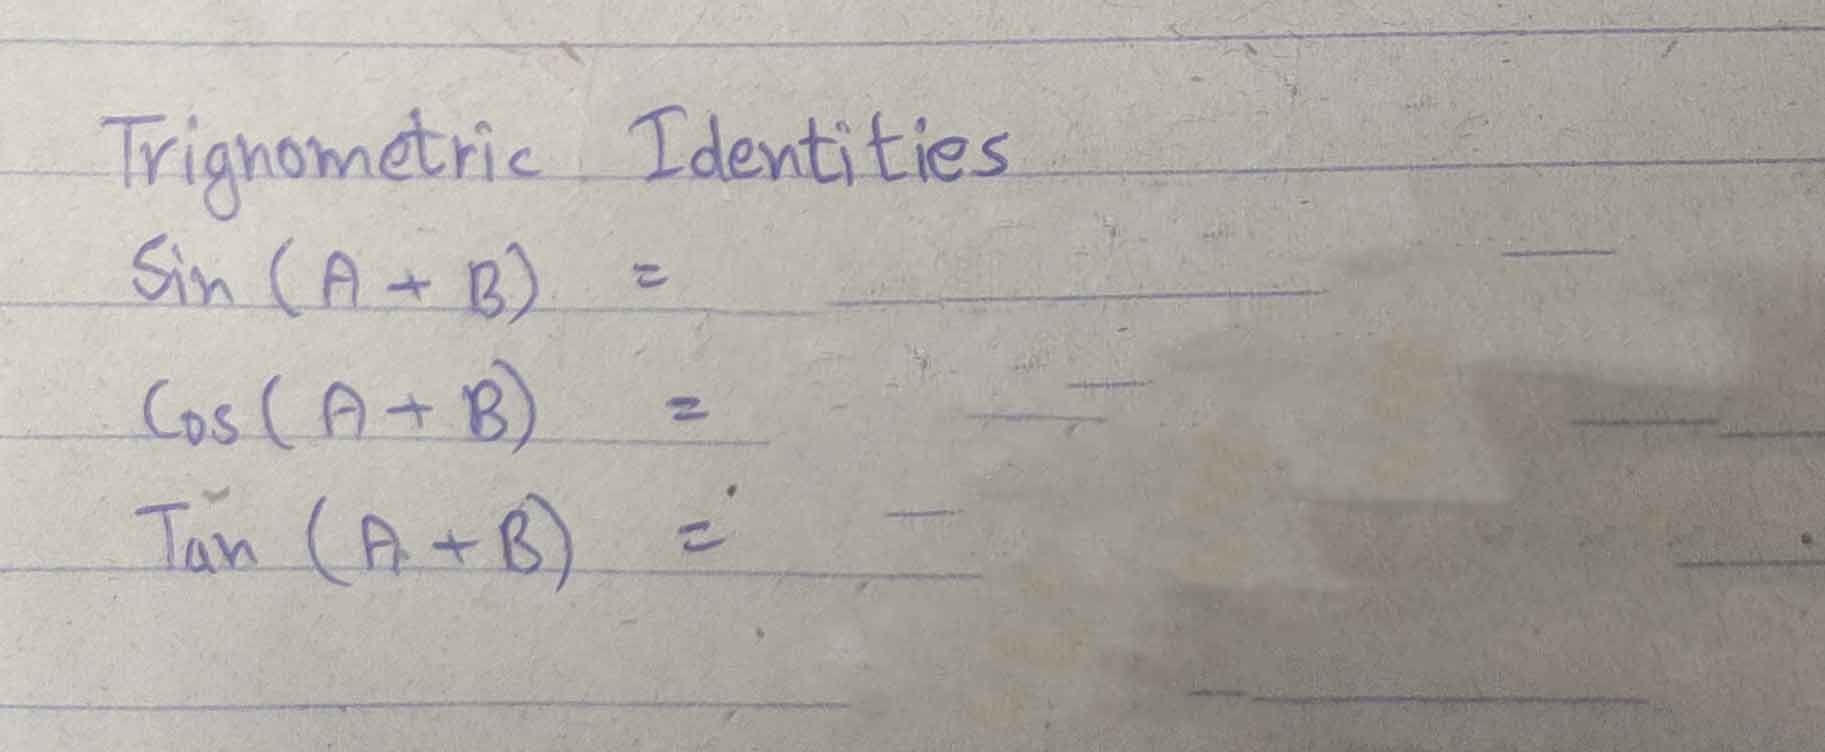 Trignometric Identities
Sin (A + B) =
Cos (A + B) =
Tan (A + B) =